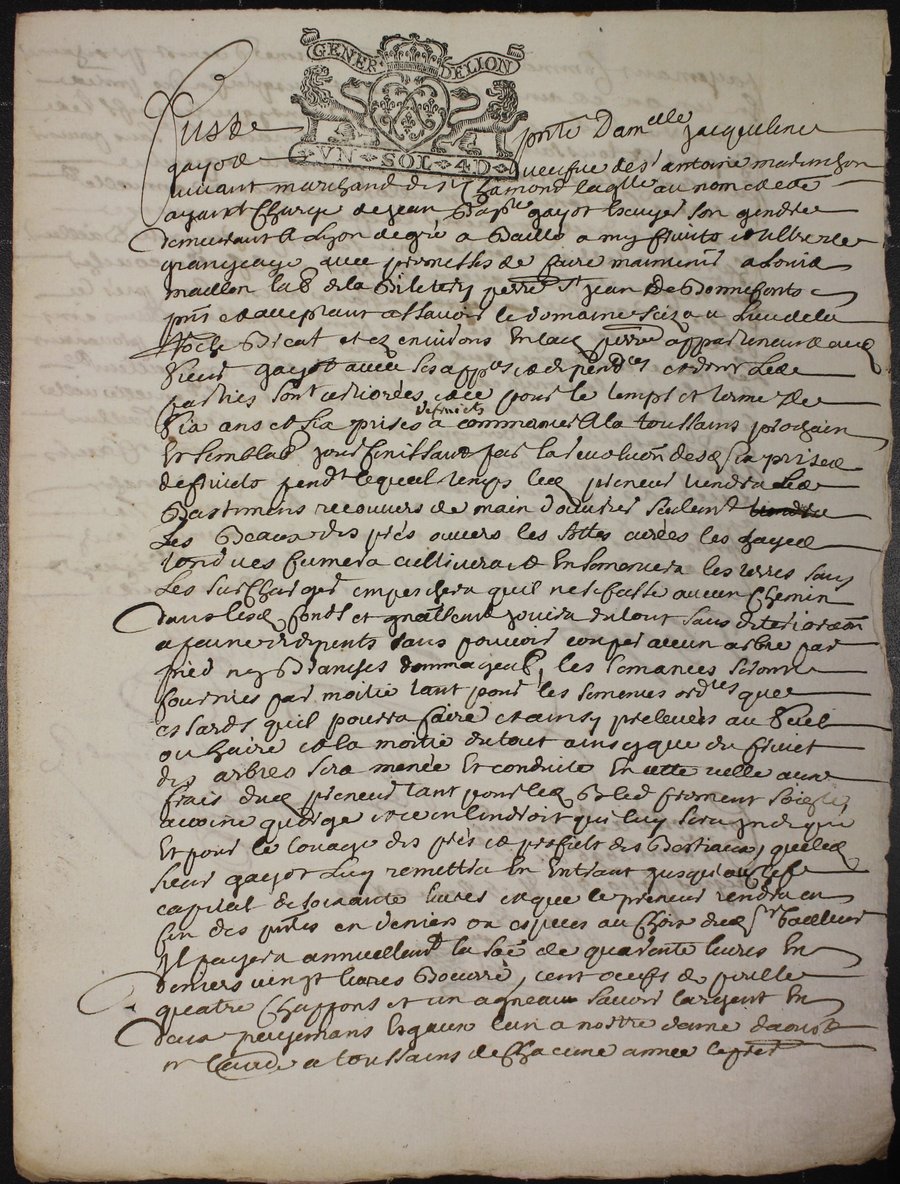 GENER DELION
VN SOL 4D
Fust pnte Damelle Jacqueline
gayot veufve de sr antoine matinchon
vivant marchand de st Chamond laqlle au nom et
ayant Charge de Jean Bapte gayot Escuyer son gendre
demeurant a Lyon de gré a Baillé a my fruits et
grangeage avec promesses de faire maintenir a Louis
maillon lab de la perre st Jean De Bonnefonts
pnt et acceptant assavoir le domaine size au lieu de la
Roche et ez environs En lad perre appartenant aud
sieur gayot avec ses apps et depends et dont les
parties sont et ce pour le temps et terme de
derniers
six ans et six prises a commancer A la toussaint prochain
Et semblab jour finissant par la revolution desd six prises
de fruits pendt lequel temps led preneur tiendra les
Bastimens recouvers de main d'ouvrier seulemt
Les Beaux des prés ouvers les curées les hayes
tondues fumera cultivera et Ensemencera les terres sans
Les surCharger empeschera quil ne se fasse aucun Chemin
dans lesd fonds et gnallemt jouira du tout sans deterioraon
a peine de depents sans pouvoir couper aucun arbre par
pied ny Branches dommageab, les semances seront
fournies par moitié tant pour les semences ordres que
essarts quil pourra faire et ainsy prelevées au
ou haire et la moitié du tout ainsy que du fruict
des arbres sera menée Et conduite En cette ville aux
frais dud preneur tant pour led Bled froment soigle
avoine et ce en lendroit qui luy sera Indiqué
Et pour le louage des prés et profits des Bestiaux, que led
sieur gayot Luy remettra En Entrant jusqu'au
capital de soixante livres et que le preneur rendra en
fin des pntes en deniers ou especes au choix dud sr Bailleur
Il payera annuellemt la so͞e de quarente livres En
deniers vingt livres Beurre, cent oeufs de poulle
quatre Chappons et un agneau savoir largent En
deux payemans Esgaux lun a nostre dame daoust
et laude a toussains de chacune année le pier